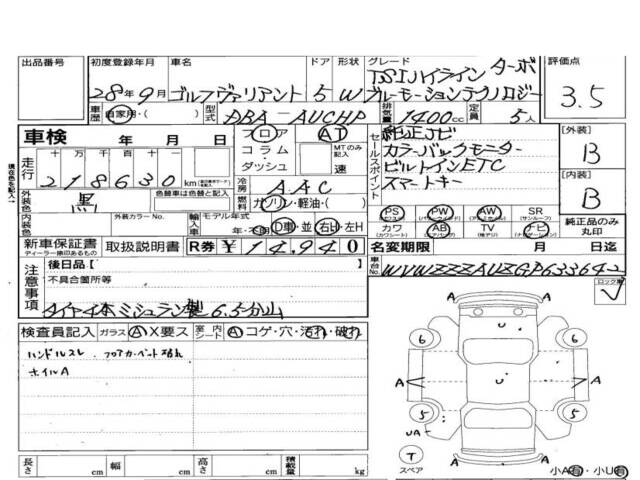 出品番号 初度登録年月 車名 ドア 形状 グレード 評価点
28年9月 ゴルフヴァリアント 5 W TSIハイライン ターボ
ブルーモーションテクノロジー
3.5
車歴 自家用・( ) 型式 DBA-AUCHP 排気量 1400cc 定員 5人
車検 年 月 日 フロア・コラム・ダッシュ AT MTのみ記入 速
セールスポイント
純正ナビ
カラーバックモニター
ビルトインETC
スマートキー
[外装] B
[内装] B
現在色を記入
走行 十万 万 千 百 十 一
218630 km
冷房 AAC
外装色 黒 色替車は色替と記入
燃料 ガソリン・軽油・( )
PS AB PW AW SR (サンルーフ)
カワ (カワシート) TV ナビ
純正品のみ丸印
内装色 外装カラーNo. 輸入車 モデル年式 年・不明 D車・並 右H・左H
新車保証書 取扱説明書 R券 ¥14,940
ディーラー捺印あるもの
名変期限 月 日迄
車台No. WVWZZZAUZGP633642
注意事項 後日品【 】
不具合箇所等
タイヤ4本ミシュラン製 6.5分山
ロック車
検査員記入 ガラス A X要ス 室内シート A コゲ・穴・汚れ・破れ
ハンドルスレ フロアカーペット汚れ
ホイルA
6 6 5 5
A A A A A A A
U U UA
T スペア
小A有・小U有
長さ cm 幅 cm 高さ cm 積載量 kg